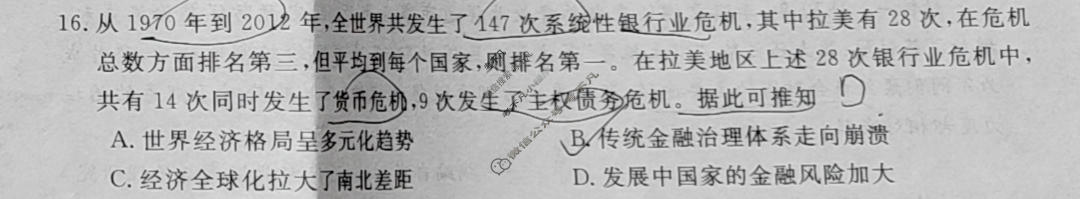 16. 从 1970 年到 2012 年,全世界共发生了 147 次系统性银行业危机,其中拉美有 28 次,在危机
总数方面排名第三,但平均到每个国家,则排名第一。在拉美地区上述 28 次银行业危机中,
共有 14 次同时发生了货币危机,9 次发生了主权债务危机。据此可推知 D
A. 世界经济格局呈多元化趋势 B. 传统金融治理体系走向崩溃
C. 经济全球化拉大了南北差距 D. 发展中国家的金融风险加大